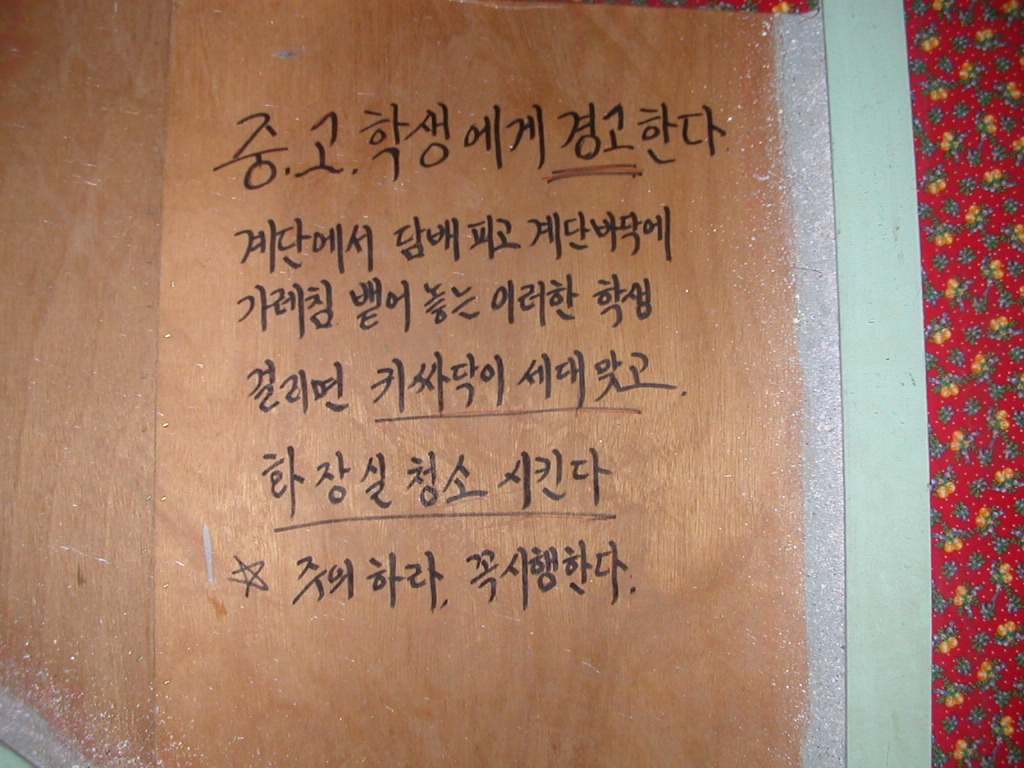 중.고.학생에게 경고한다.
계단에서 담배피고 계단바닥에
가레침 뱉어 놓는 이러한 학생
걸리면 키싸닥이 세대맞고.
화장실 청소 시킨다
☆ 주의하라. 꼭시행한다.